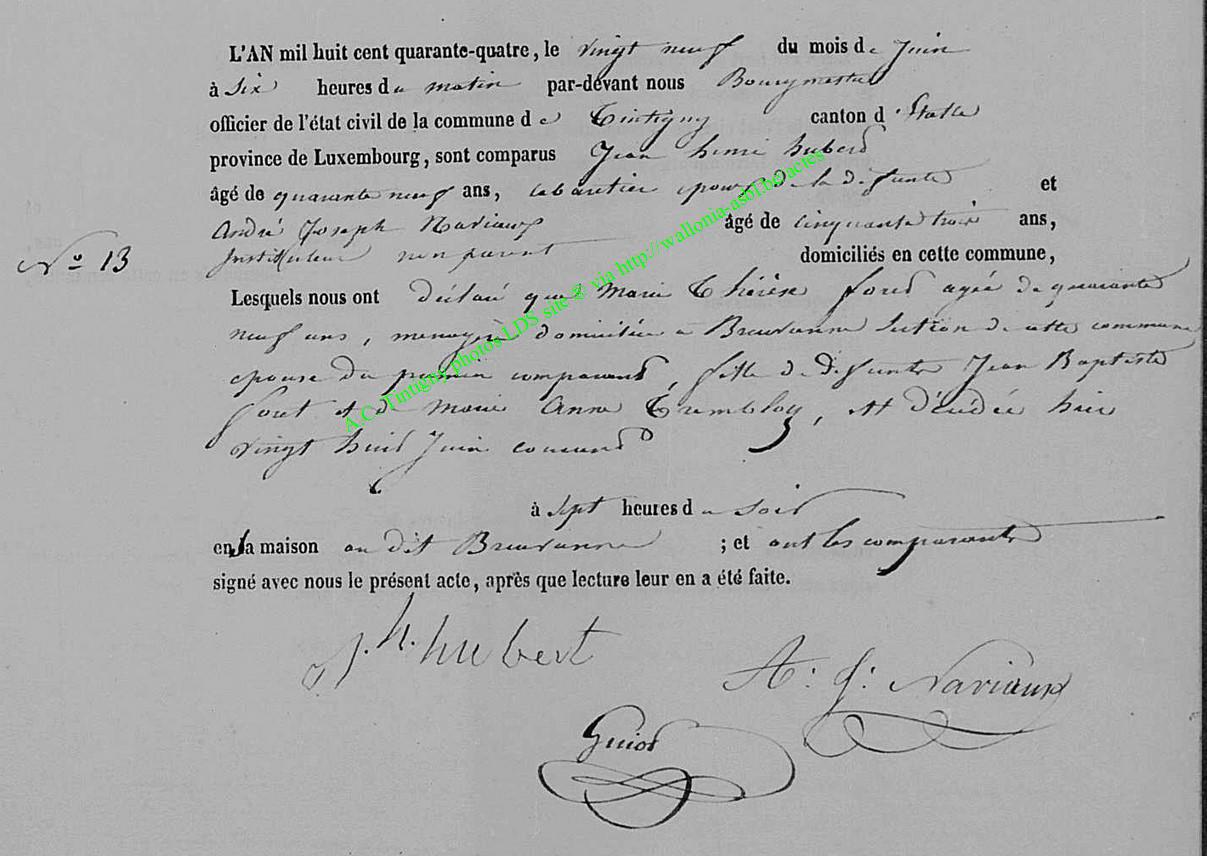 L'AN mil huit cent quarante-quatre, le vingt neuf du mois de Juin
à Six heures du matin par-devant nous Bourgmestre
officier de l'état civil de la commune de Tintigny canton d'Etalle
province de Luxembourg, sont comparus Jean henri hubert
âgé de quarante neuf ans, cabaretier epoux de la defunte et
André Joseph Naviaux âgé de cinquante trois ans,
Instituteur non parent domiciliés en cette commune,
N° 13
Lesquels nous ont déclaré que Marie Thérèse foret agée de quarante
neuf ans, menagère domiciliée a Breuvanne Section de cette commune
epouse du premier comparant, fille de defunts Jean Baptiste
foret et de Marie Anne Trembloy, est décédée hier
vingt huit Juin courant
à Sept heures du Soir
en sa maison au dit Breuvanne ; et ont les comparants
signé avec nous le présent acte, après que lecture leur en a été faite.
J. h. hubert
A: J: Naviaux
Guiot
A.C. Tintigny photos LDS site ® via http://wallonia-asbl.be/actes